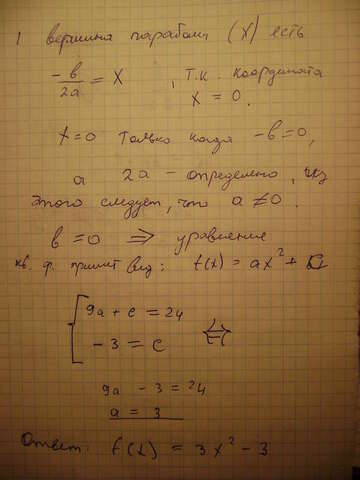 1 вершина параболы (X) есть
-в/2a = X , т.к. координата
X = 0.
X=0 только когда -в=0,
а 2a - определено, из
этого следует, что a ≠ 0.
в=0 ⇒ уравнение
кв. ф. примет вид: f(x) = ax² + c
{ 9a + c = 24
-3 = c ⇔
9a - 3 = 24
a = 3
Ответ: f(x) = 3x² - 3